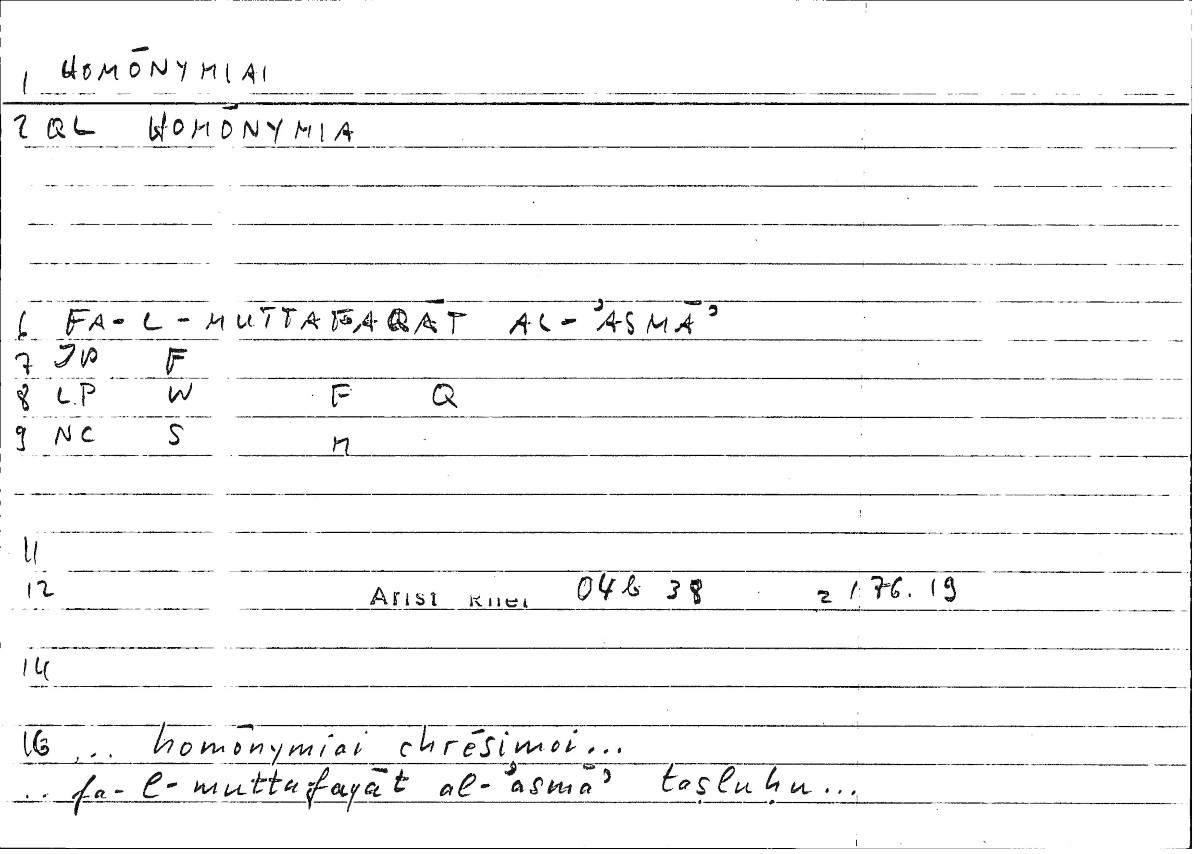 1 HOMŌNYMIAI
2 QL HOMŌNYMIA
6 FA-L-MUTTAFAQĀT AL-ʾASMĀʾ
7 JP F
8 LP W F Q
9 NC S M
11
12 Arist Rhet 04b 38 = 176.19
14
16 ... homōnymiai chrēsimoi...
.. fa-l-muttafaqāt al-ʾasmāʾ taṣluḥu...